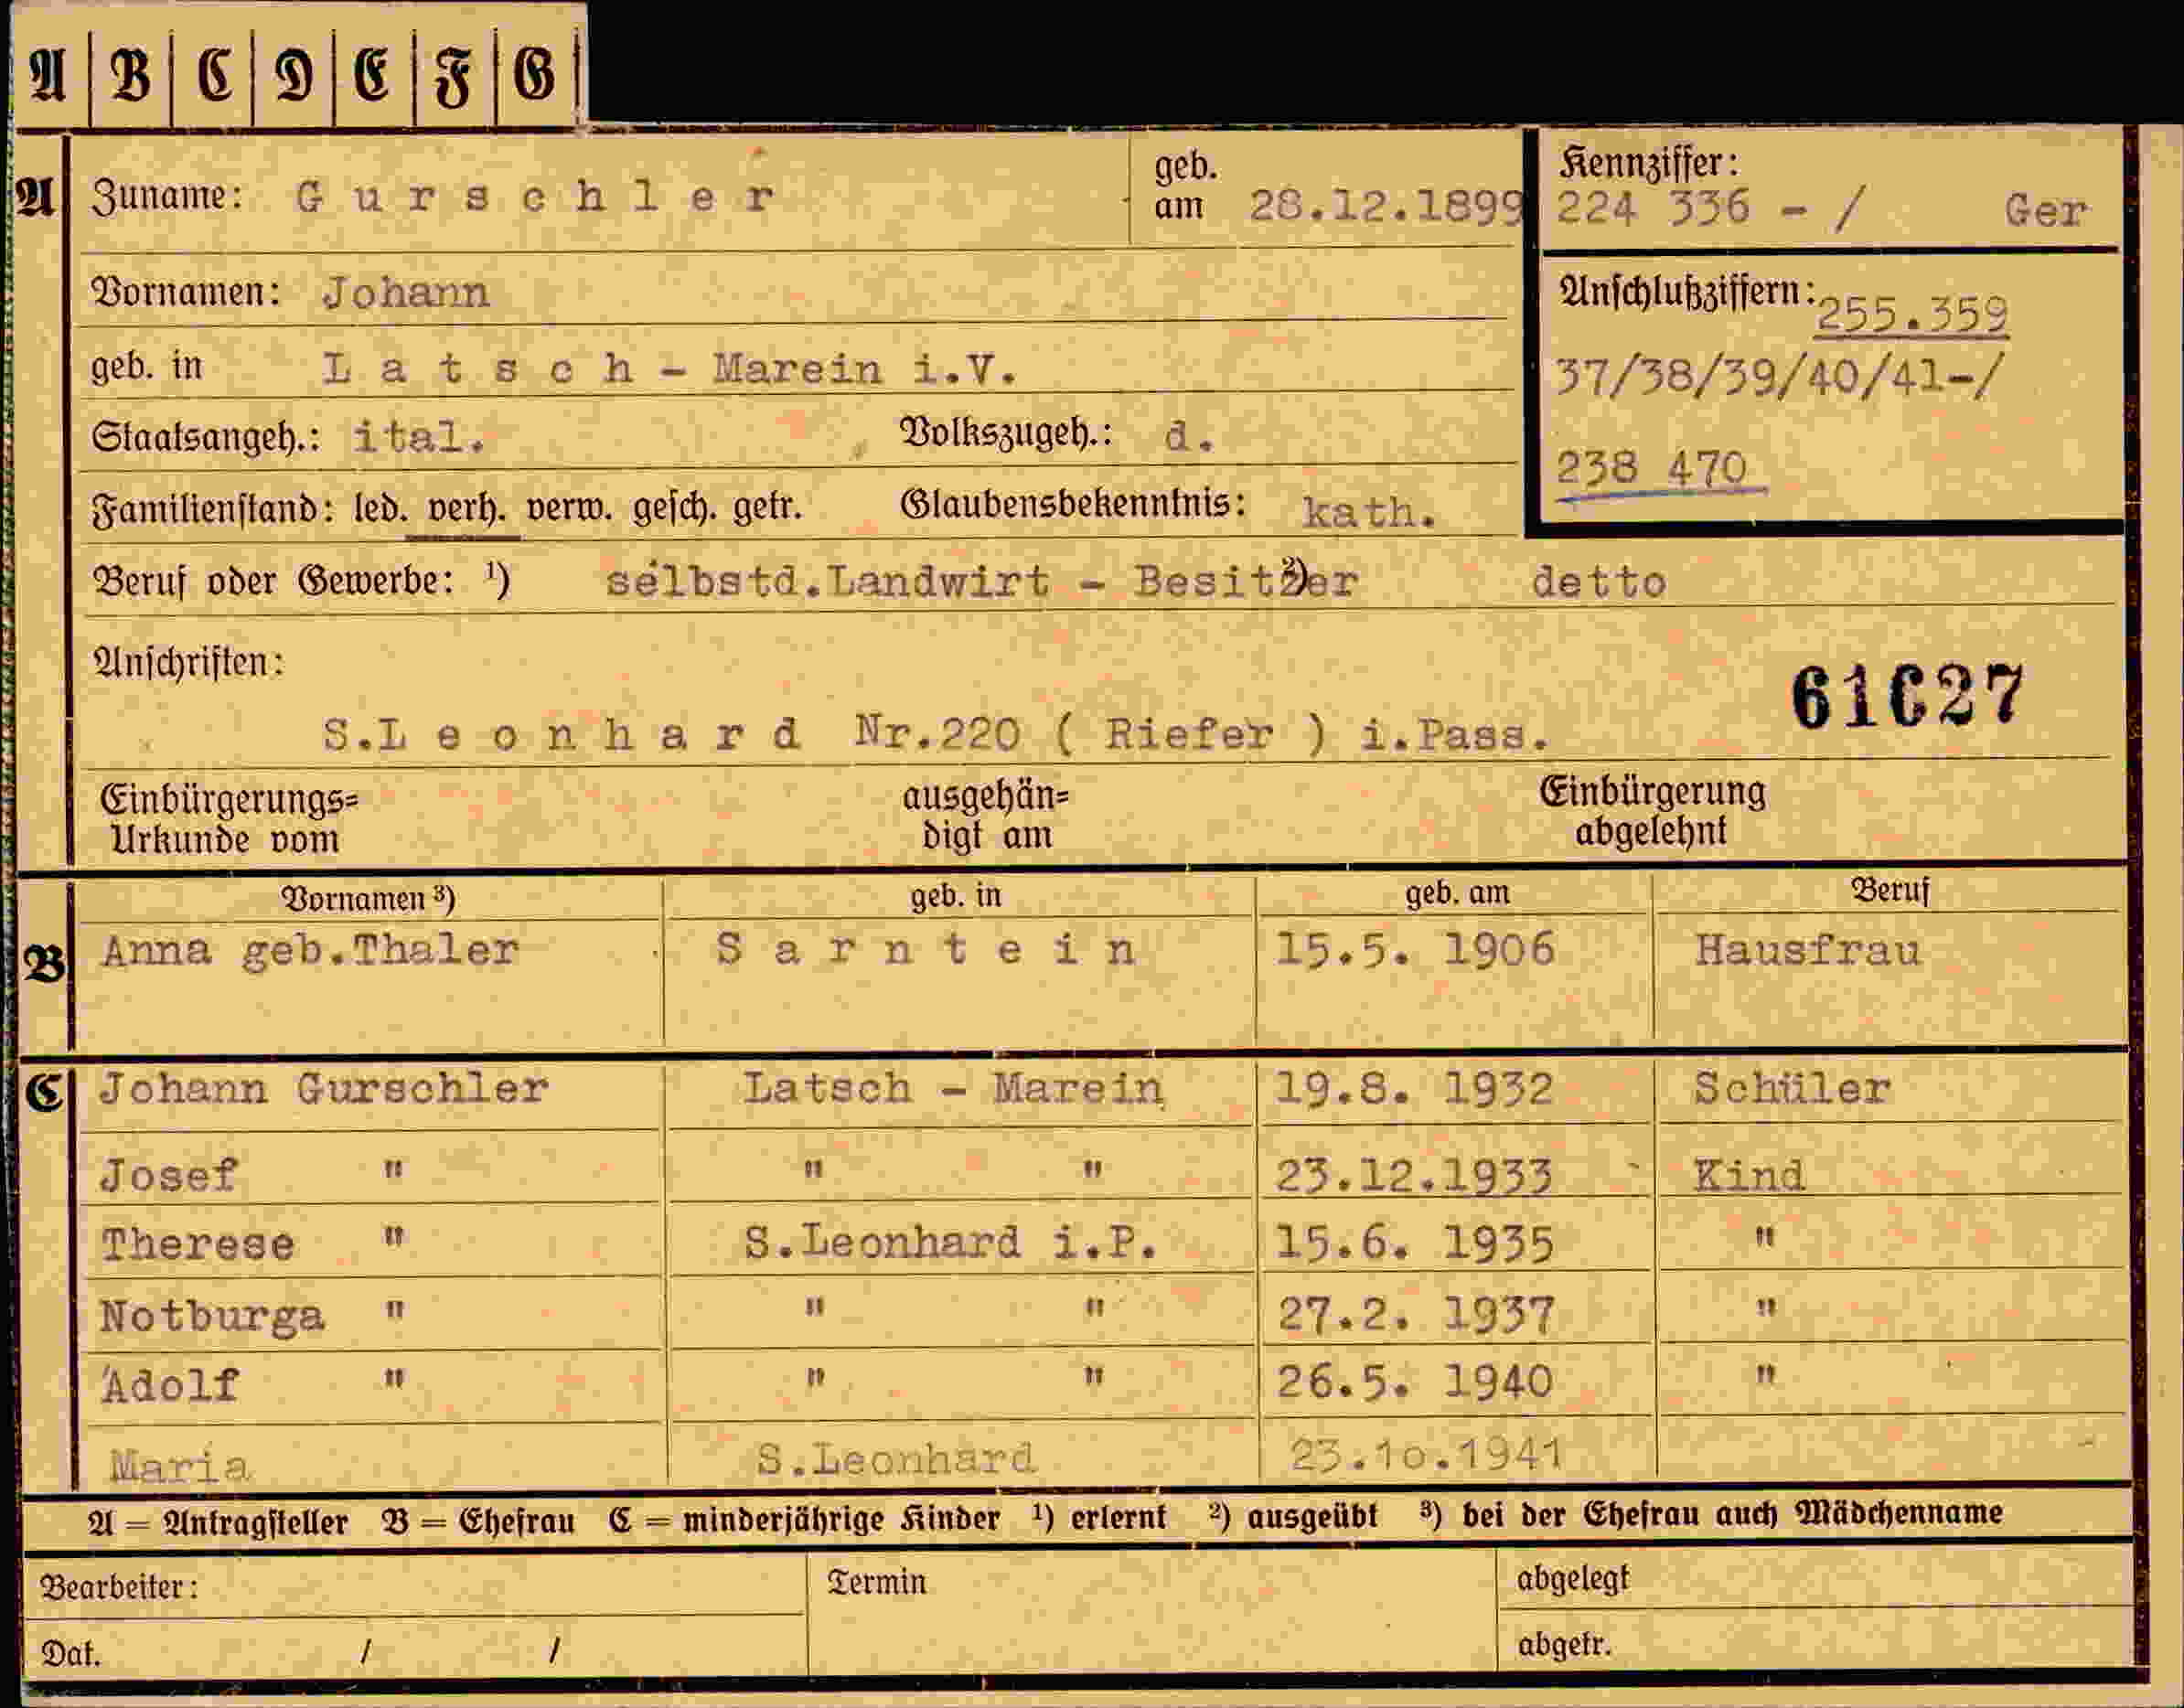 A B C D E F G
A Zuname: Gurschler geb. am 28.12.1899 Kennziffer: 224 336 - / Ger
Vornamen: Johann Anschlußziffern: 255.359
geb. in Latsch - Marein i.V. 37/38/39/40/41-/
Staatsangeh.: ital. Volkszugeh.: d. 238 470
Familienstand: led. verh. verw. gesch. getr. Glaubensbekenntnis: kath.
Beruf oder Gewerbe: ¹) selbstd.Landwirt - Besitzer ²) detto
Anschriften: 61627
S.Leonhard Nr.220 ( Riefer ) i.Pass.
Einbürgerungs= ausgehän= Einbürgerung
Urkunde vom digt am abgelehnt
Vornamen ³) geb. in geb. am Beruf
B Anna geb.Thaler Sarntein 15.5. 1906 Hausfrau
C Johann Gurschler Latsch - Marein 19.8. 1932 Schüler
Josef " " " 23.12.1933 Kind
Therese " S.Leonhard i.P. 15.6. 1935 "
Notburga " " " 27.2. 1937 "
Adolf " " " 26.5. 1940 "
Maria S.Leonhard 23.10.1941
A = Antragsteller B = Ehefrau C = minderjährige Kinder ¹) erlernt ²) ausgeübt ³) bei der Ehefrau auch Mädchenname
Bearbeiter: Termin abgelegt
Dat. / / abgetr.